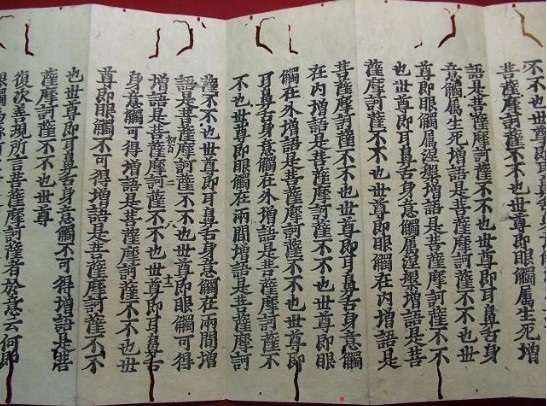 菩薩摩訶薩不不也世尊即眼觸屬生死增
語是菩薩摩訶薩不不也世尊即耳鼻舌身
意觸屬生死增語是菩薩摩訶薩不不也世
尊即眼觸屬涅槃增語是菩薩摩訶薩不不
也世尊即耳鼻舌身意觸屬涅槃增語是菩
薩摩訶薩不不也世尊即眼觸在內增語是
菩薩摩訶薩不不也世尊即耳鼻舌身意觸
在內增語是菩薩摩訶薩不不也世尊即眼
觸在外增語是菩薩摩訶薩不不也世尊即
耳鼻舌身意觸在外增語是菩薩摩訶薩不
不也世尊即眼觸在兩間增語是菩薩摩訶
薩不不也世尊即耳鼻舌身意觸在兩間增
語是菩薩摩訶薩不不也世尊即眼觸可得
增語是菩薩摩訶薩不不也世尊即耳鼻舌
身意觸可得增語是菩薩摩訶薩不不也世
尊即眼觸不可得增語是菩薩摩訶薩不不
也世尊即耳鼻舌身意觸不可得增語是菩
薩摩訶薩不不也世尊
復次善現所言菩薩摩訶薩者於意云何即
眼觸